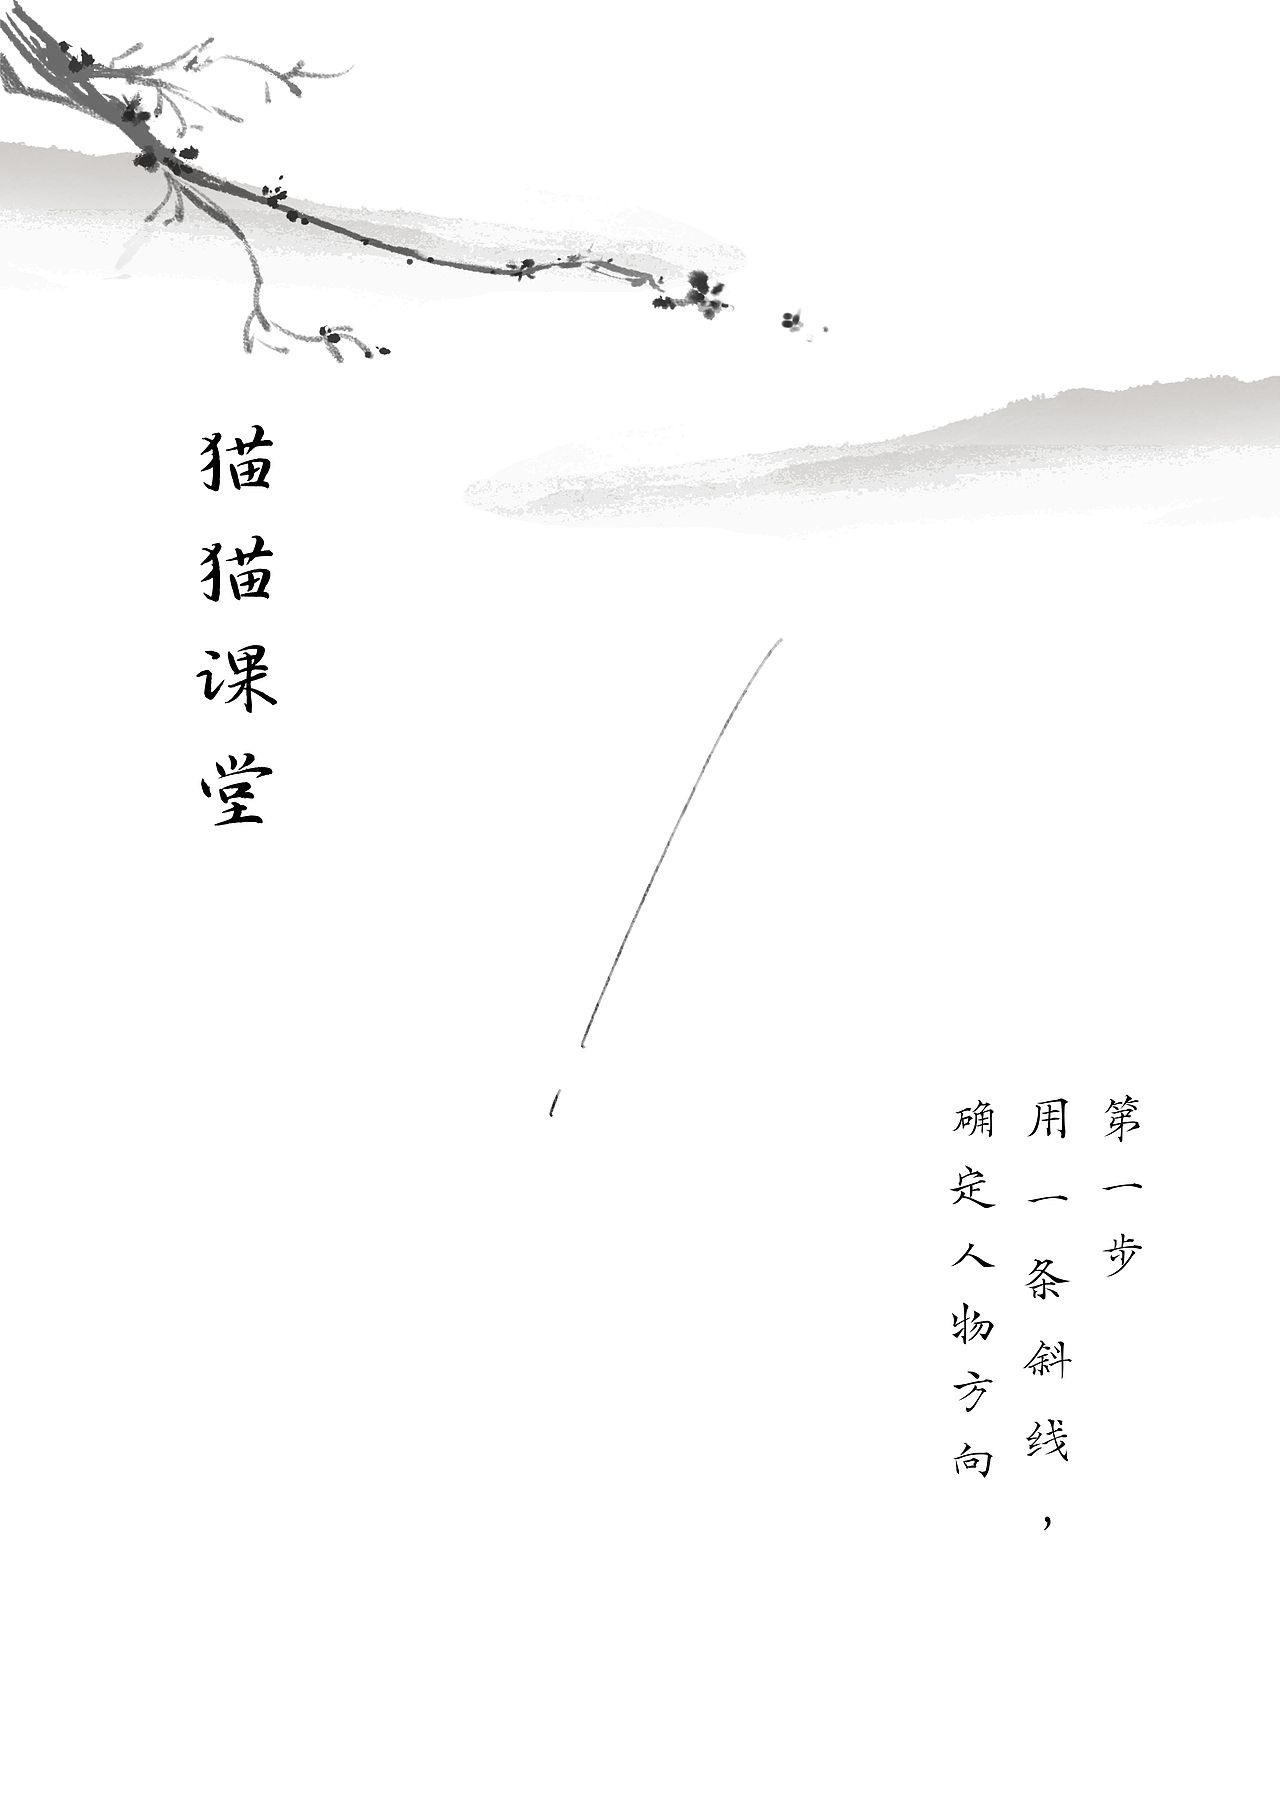 猫猫课堂
第一步
用一条斜线，
确定人物方向